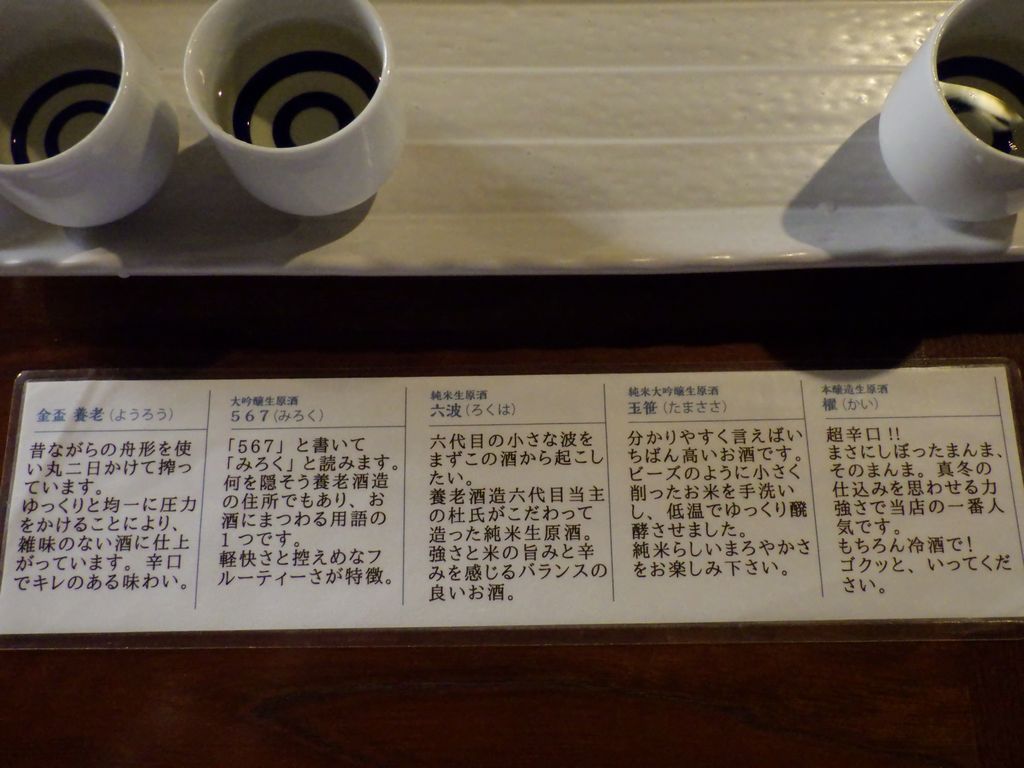 金盃 養老(ようろう)
昔ながらの舟形を使
い丸二日かけて搾っ
ています。
ゆっくりと均一に圧力
をかけることにより、
雑味のない酒に仕上
がっています。辛口
でキレのある味わい。
大吟醸生原酒
567(みろく)
「567」と書いて
「みろく」と読みます。
何を隠そう養老酒造
の住所でもあり、お
酒にまつわる用語の
1つです。
軽快さと控えめなフ
ルーティーさが特徴。
純米生原酒
六波(ろくは)
六代目の小さな波を
まずこの酒から起こし
たい。
養老酒造六代目当主
の杜氏がこだわって
造った純米生原酒。
強さと米の旨みと辛
みを感じるバランスの
良いお酒。
純米大吟醸生原酒
玉笹(たまささ)
分かりやすく言えばい
ちばん高いお酒です。
ビーズのように小さく
削ったお米を手洗い
し、低温でゆっくり醗
酵させました。
純米らしいまろやかさ
をお楽しみ下さい。
本醸造生原酒
櫂(かい)
超辛口!!
まさにしぼったまんま、
そのまんま。真冬の
仕込みを思わせる力
強さで当店の一番人
気です。
もちろん冷酒で!
ゴクッと、いってくだ
さい。